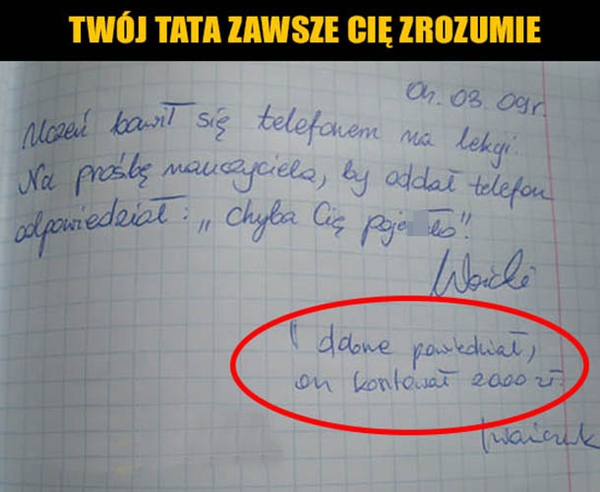 TWÓJ TATA ZAWSZE CIĘ ZROZUMIE
04.03.09r.
Uczeń bawił się telefonem na lekcji.
Na prośbę nauczyciela, by oddał telefon
odpowiedział: „chyba Cię poje ło”.
I dobrze powiedział,
on kosztował 2000 zł.